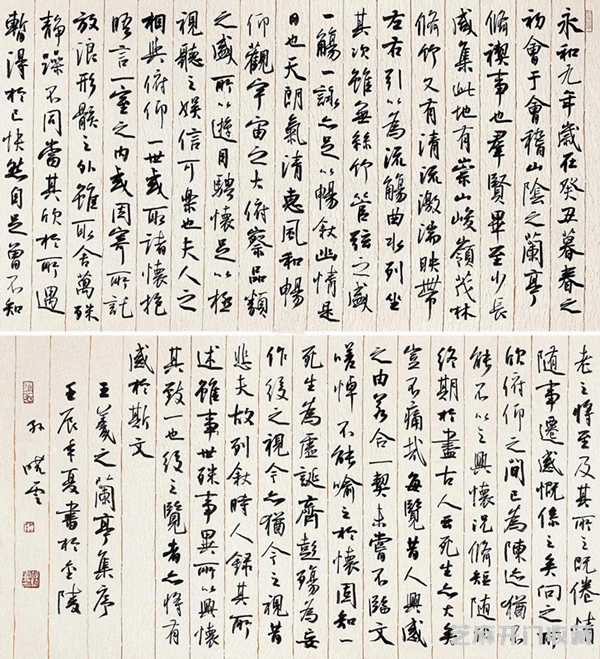 永和九年歲在癸丑暮春之
初會于會稽山陰之蘭亭
脩禊事也羣賢畢至少長
咸集此地有崇山峻嶺茂林
脩竹又有清流激湍映帶
左右引以為流觴曲水列坐
其次雖無絲竹管弦之盛
一觴一詠亦足以暢敘幽情是
日也天朗氣清惠風和暢
仰觀宇宙之大俯察品類
之盛所以遊目騁懷足以極
視聽之娛信可樂也夫人之
相與俯仰一世或取諸懷抱
晤言一室之內或因寄所託
放浪形骸之外雖取舍萬殊
靜躁不同當其欣於所遇
暫得於己快然自足曾不知
老之將至及其所之既倦情
隨事遷感慨係之矣向之所
欣俯仰之間已為陳迹猶不
能不以之興懷況脩短隨化
終期於盡古人云死生亦大矣
豈不痛哉每覽昔人興感
之由若合一契未嘗不臨文
嗟悼不能喻之於懷固知一
死生為虛誕齊彭殤為妄
作後之視今亦猶今之視昔
悲夫故列敘時人錄其所
述雖世殊事異所以興懷
其致一也後之覽者亦將有
感於斯文
王羲之蘭亭集序
壬辰年夏書於金陵
孫曉雲